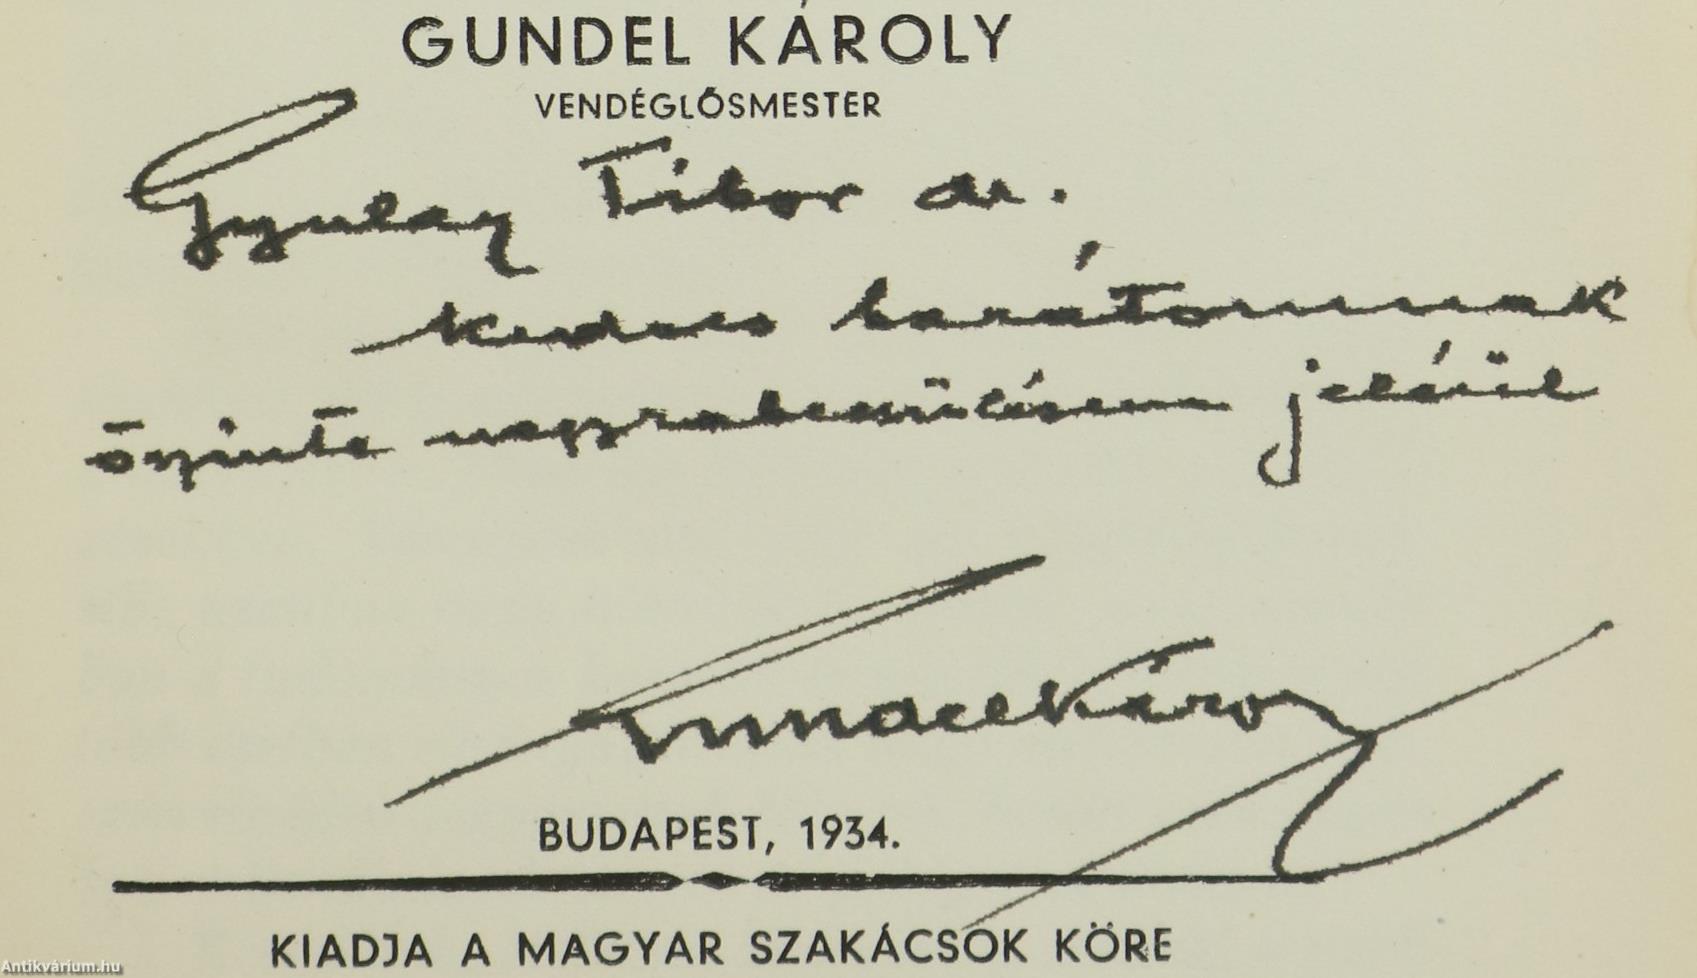 GUNDEL KÁROLY
VENDÉGLŐSMESTER
Gyulay Tibor dr.
kedves barátomnak
őszinte nagyrabecsülésem jeléül
Gundel Károly
BUDAPEST, 1934.
KIADJA A MAGYAR SZAKÁCSOK KÖRE
Antikvárium.hu